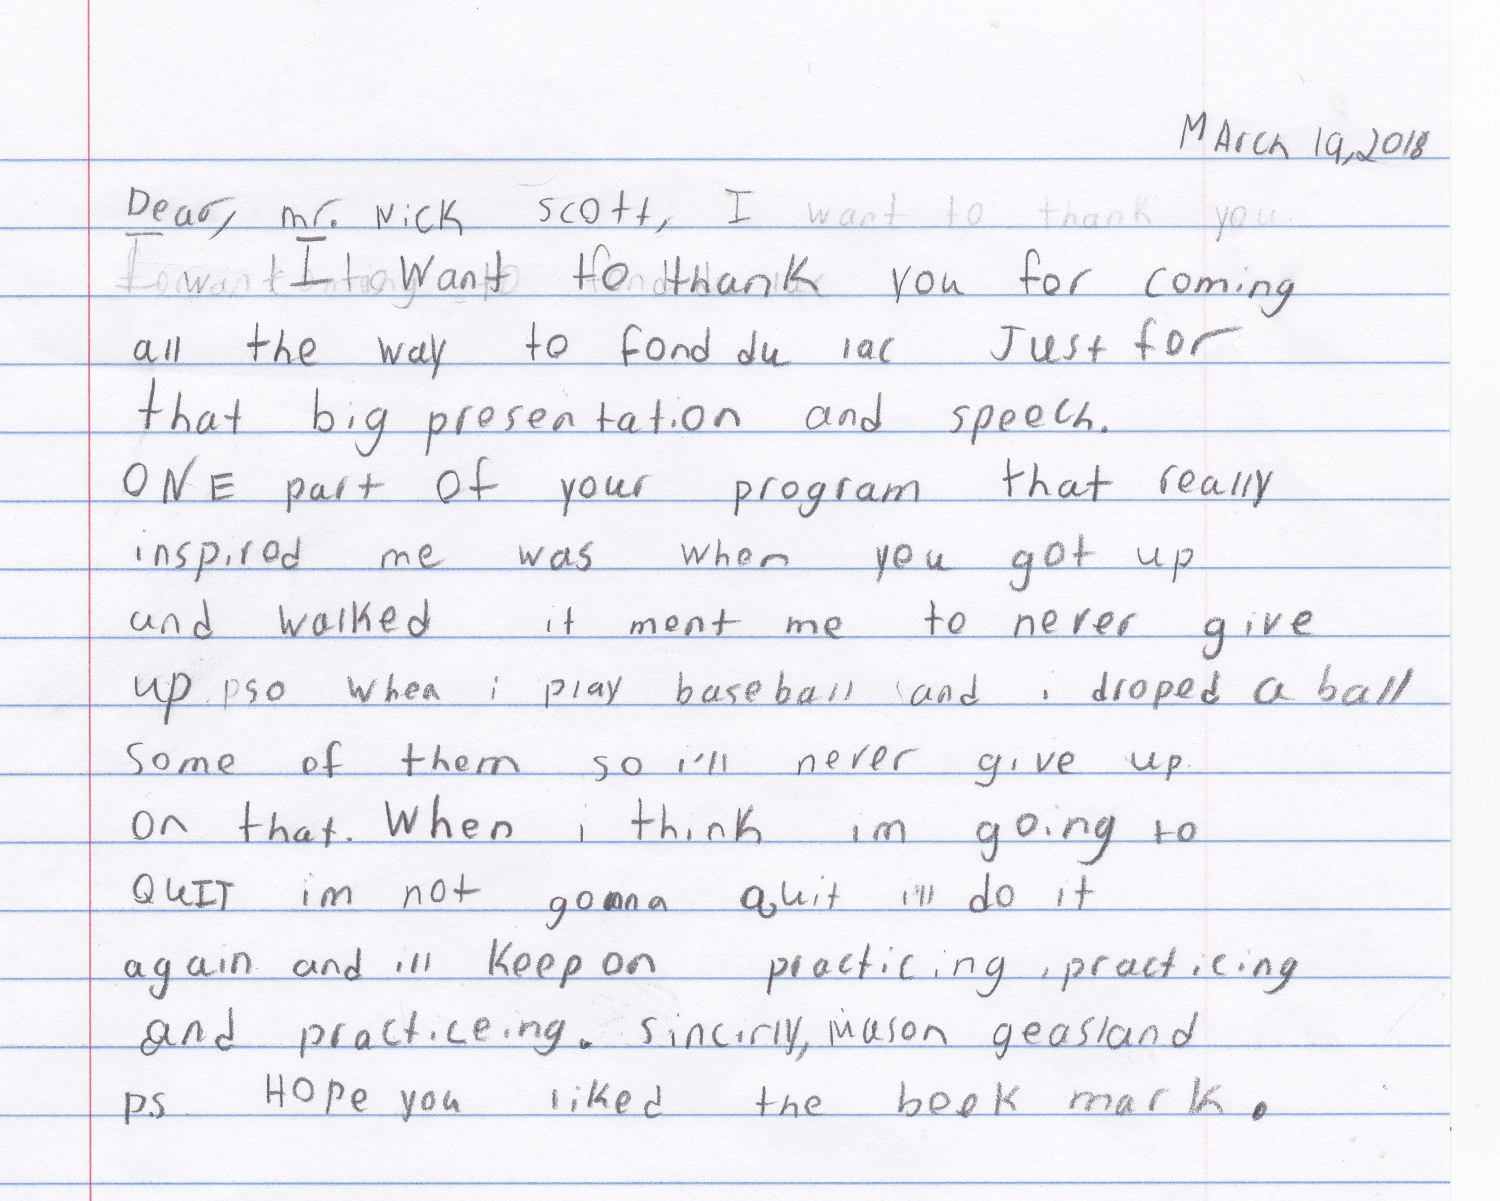 MArch 19,2018
Dear, mr. Nick scott, I want to thank you
I want to thank you for coming
all the way to fond du lac Just for
that big presentation and speech.
ONE part of your program that really
inspired me was when you got up
and walked it ment me to never give
up pso when i play baseball and i droped a ball
some of them so i'll never give up
on that. When i think im going to
QUIT im not gonna quit i'll do it
again and i'll keep on practicing, practicing
and practiceing. sincirly, mason geasland
ps HOPe you liked the book mark.